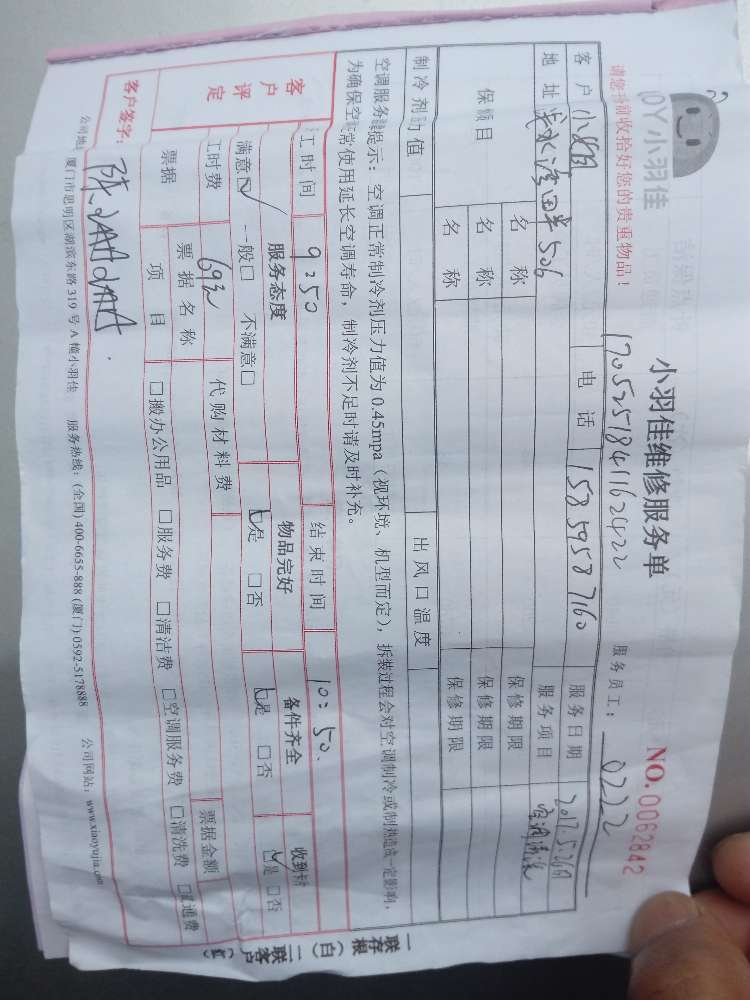 JOY小羽佳
小羽佳维修服务单
NO.0062842
1705251841162422
请您事前收拾好您的贵重物品！
服务员工：0222
客户 小姐 电话 15859587160 服务日期 2017.5.26日
地址 506 服务项目 空调清洗
保修项目 名称 保修期限
名称 保修期限
名称 保修期限
制冷剂压力值 出风口温度
空调服务提示：空调正常制冷剂压力值为0.45mpa（视环境、机型而定），拆装过程会对空调制冷或制热造成一定影响，
为确保空调正常使用延长空调寿命，制冷剂不足时请及时补充。
工时间 9:50 结束时间 10:50.
客户评定 服务态度 物品完好 备件齐全 收到
满意☑ 一般□ 不满意□ ☑是 □否 ☑是 □否 ☑是 □否
工时费 69元 代购材料费
票据 票据名称 票据金额
项目 □搬办公用品 □服务费 □清洁费 □空调服务费 □清洗费 □交通费
客户签字：陈
公司地址：厦门市思明区湖滨东路319号A幢小羽佳 服务热线：(全国) 400-6655-888 (厦门) 0592-5178888 公司网站：www.xiaoyujia.com
一联存根（白）二联客户